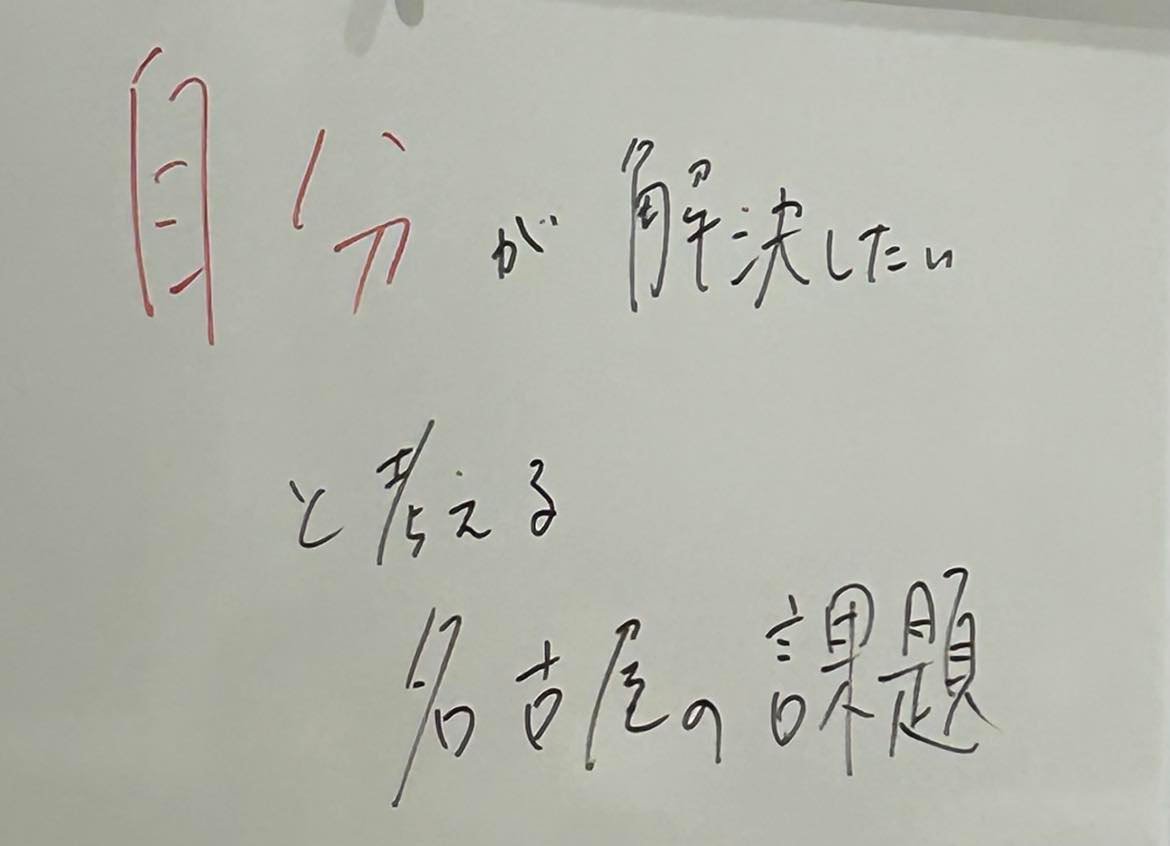 自分が解決したい
と考える
名古屋の課題